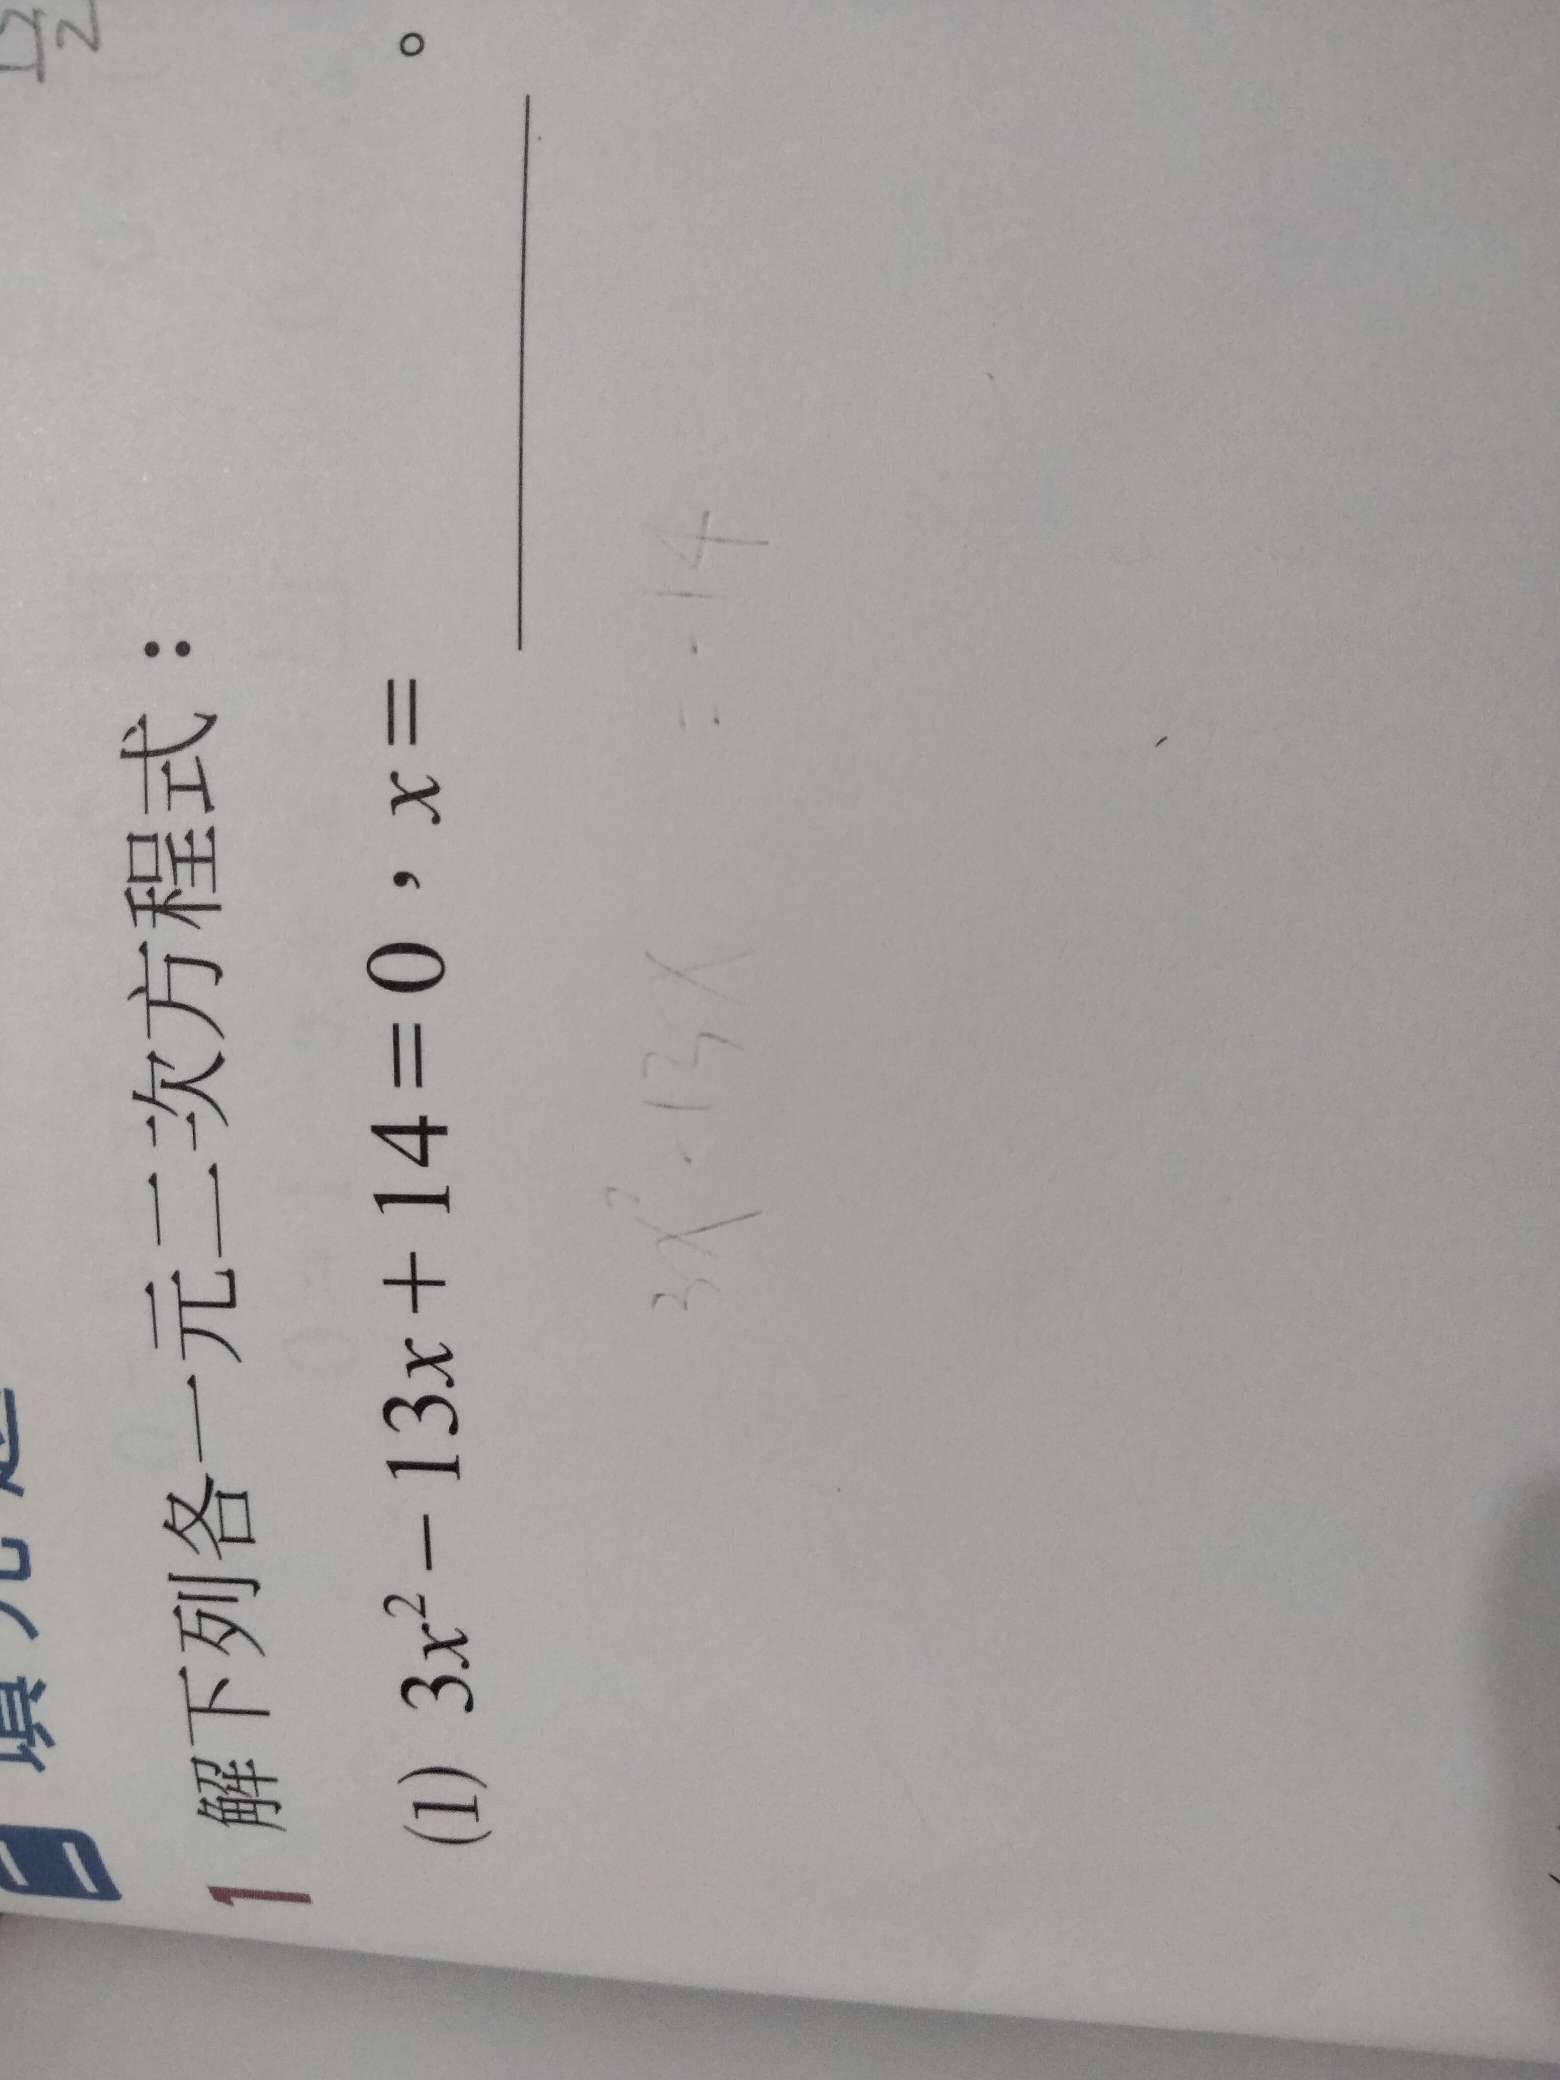 填充題
1 解下列各一元二次方程式：
(1) 3x²－13x＋14＝0，x＝＿＿＿＿＿＿。
3x²-13x = -14